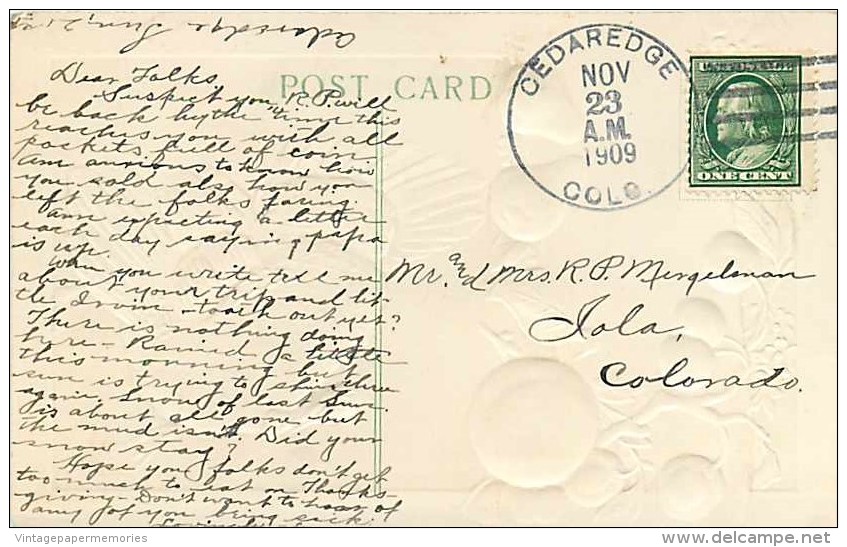 Cedaredge Sun.
Dear Folks,
Suspect you, R.P. will
be back by the time this
reaches you with all
pockets full of coin
am anxious to know how
you sold also how you
left the folks faring.
Am expecting a letter
each day saying papa
is up.
When you write tell me
about your trip and lit-
tle Irvin - tooth out yet?
There is nothing doing
here - Rained a little
this morning but
sun is trying to shine here
again. Snow of last Sun.
is about all gone but
the mud isn't. Did your
snow stay?
Hope you folks don't get
too much to eat on Thanks-
giving - Don't want to hear of
any of you being sick.
Lovingly
POST CARD
CEDAREDGE
NOV
23
A.M.
1909
COLO.
U.S. POSTAGE
ONE CENT
Mr. and Mrs. R. P. Mergelman
Iola,
Colorado.
Vintagepapermemories
delcampe.net